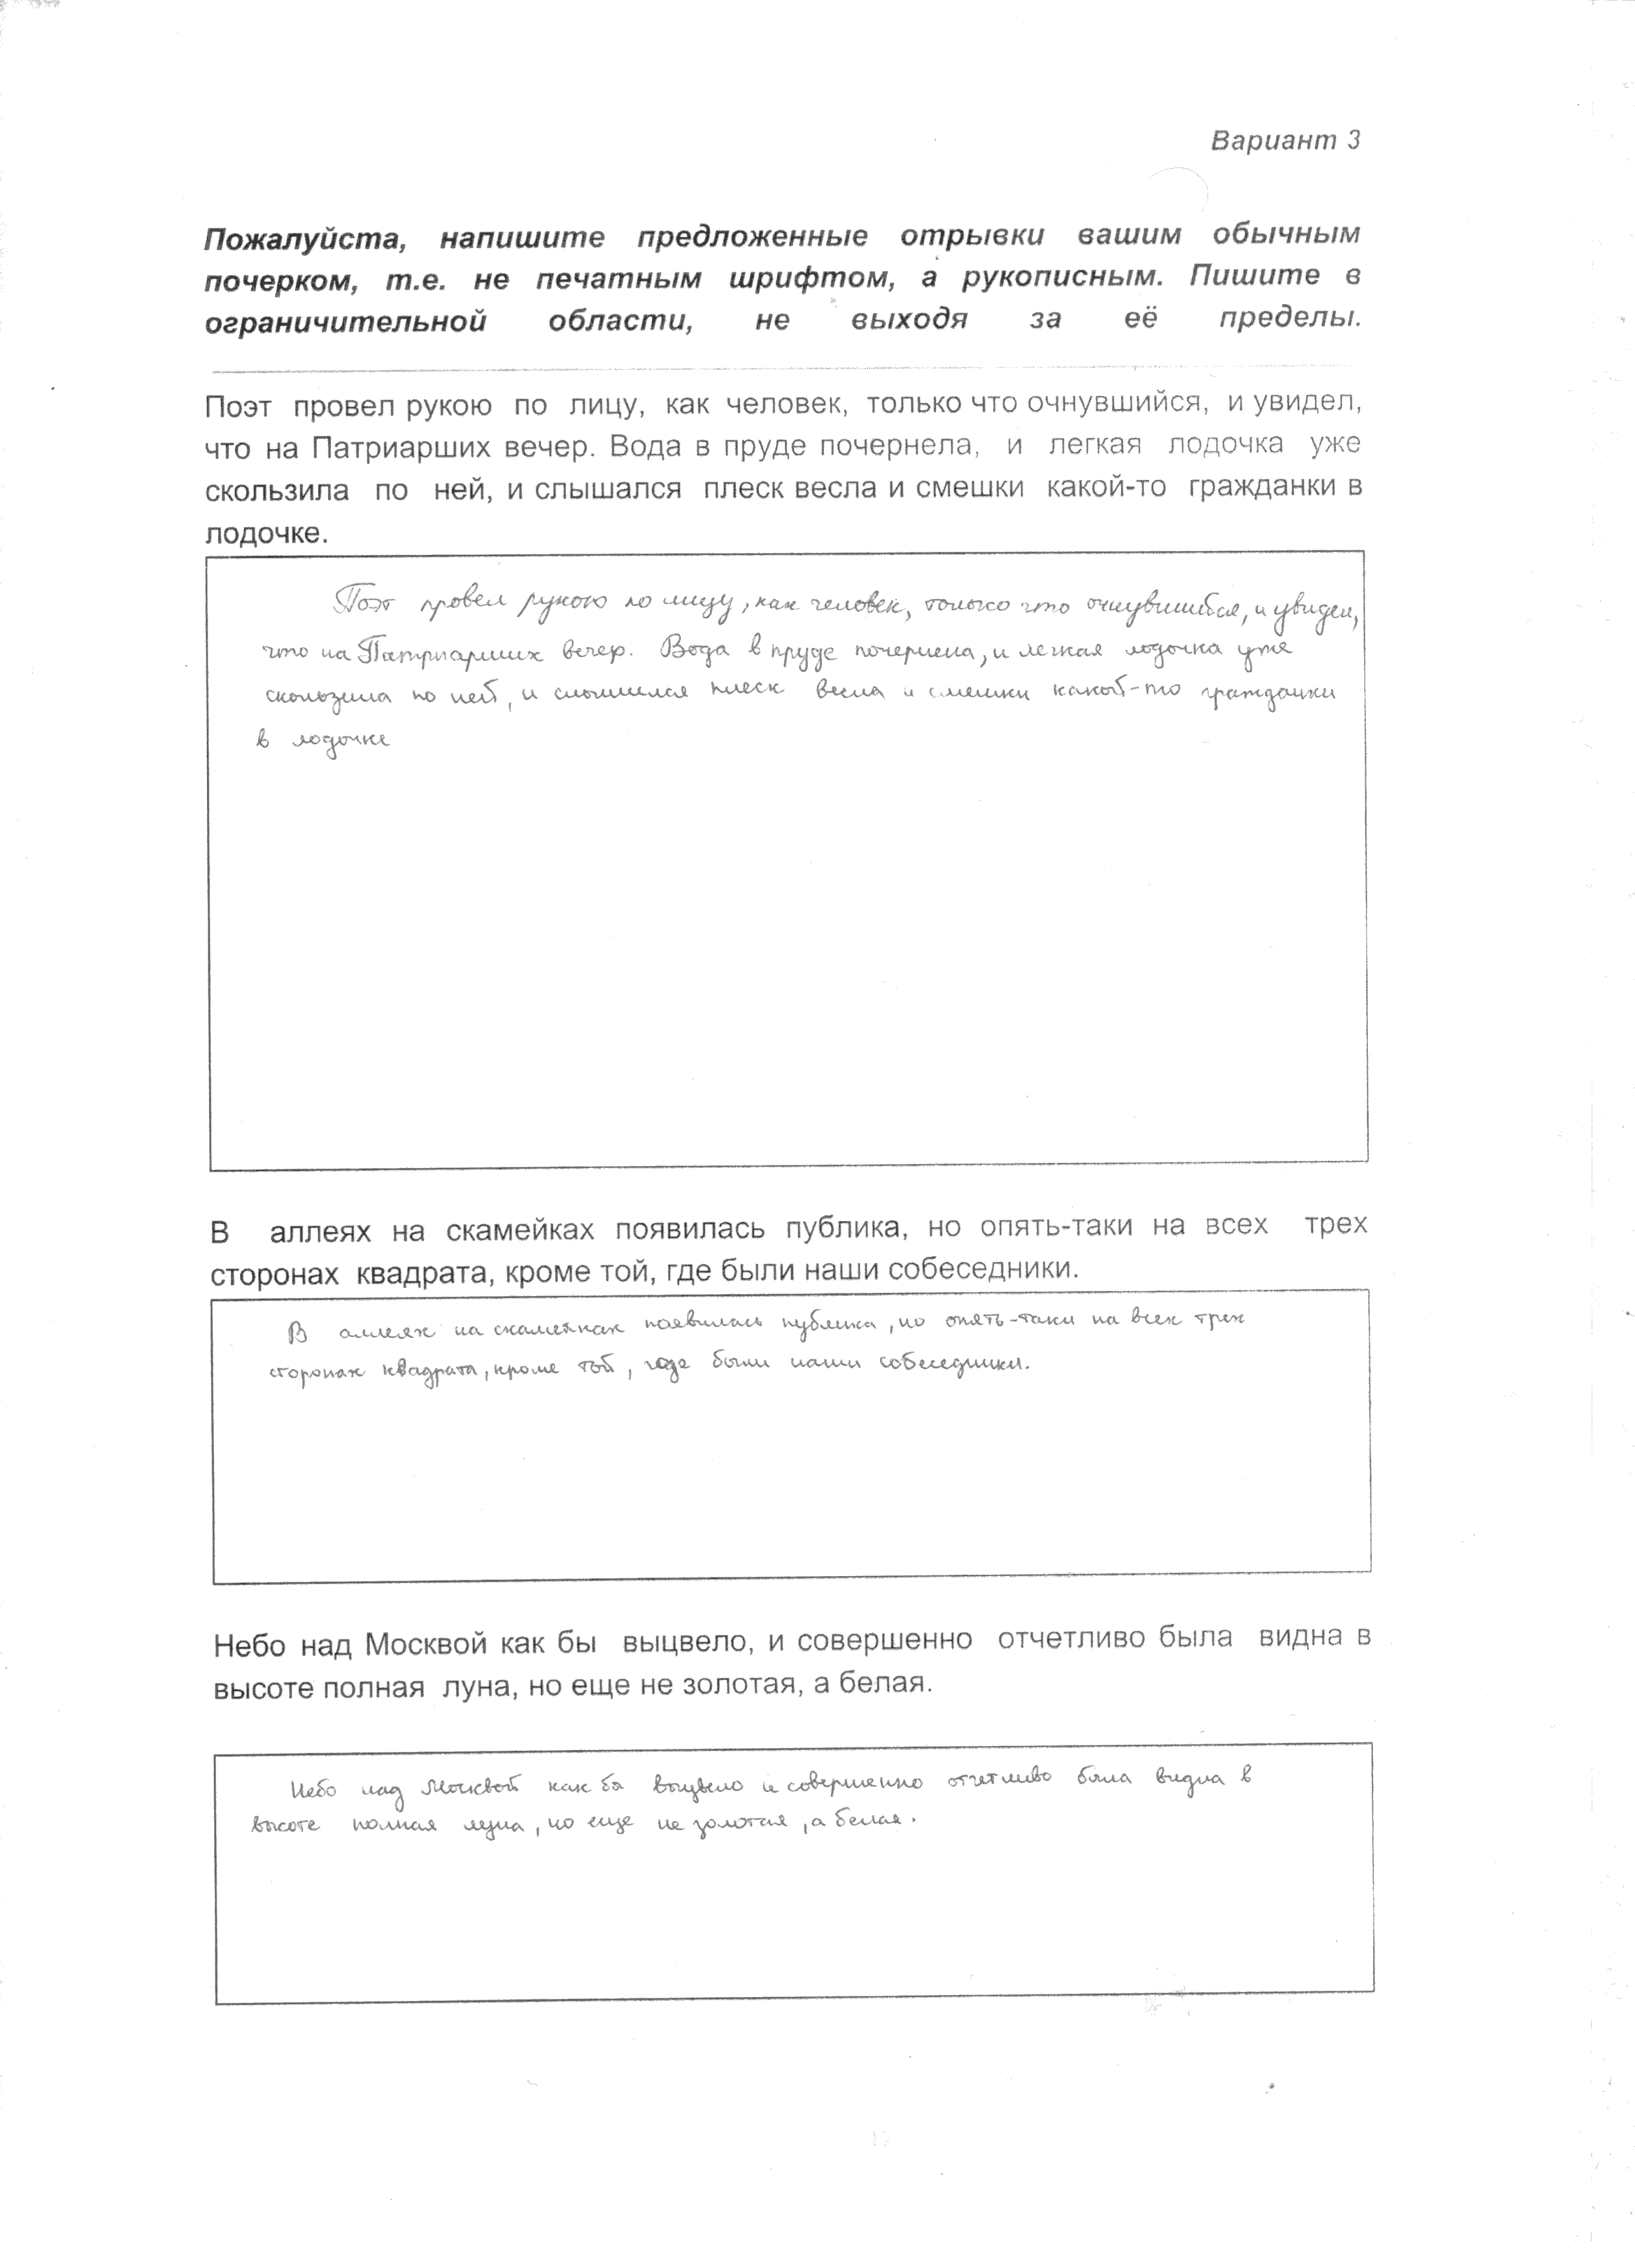 Вариант 3
Пожалуйста, напишите предложенные отрывки вашим обычным
почерком, т.е. не печатным шрифтом, а рукописным. Пишите в
ограничительной области, не выходя за её пределы.
Поэт провел рукою по лицу, как человек, только что очнувшийся, и увидел,
что на Патриарших вечер. Вода в пруде почернела, и легкая лодочка уже
скользила по ней, и слышался плеск весла и смешки какой-то гражданки в
лодочке.
Поэт провел рукою по лицу, как человек, только что очнувшийся, и увидел,
что на Патриарших вечер. Вода в пруде почернела, и легкая лодочка уже
скользила по ней, и слышился плеск весла и смешки какой-то гражданки
в лодочке
В аллеях на скамейках появилась публика, но опять-таки на всех трех
сторонах квадрата, кроме той, где были наши собеседники.
В аллеях на скамейках появилась публика, но опять-таки на всех трех
сторонах квадрата, кроме той, где были наши собеседники.
Небо над Москвой как бы выцвело, и совершенно отчетливо была видна в
высоте полная луна, но еще не золотая, а белая.
Небо над Москвой как бы выцвело и совершенно отчетливо была видна в
высоте полная луна, но еще не золотая, а белая.